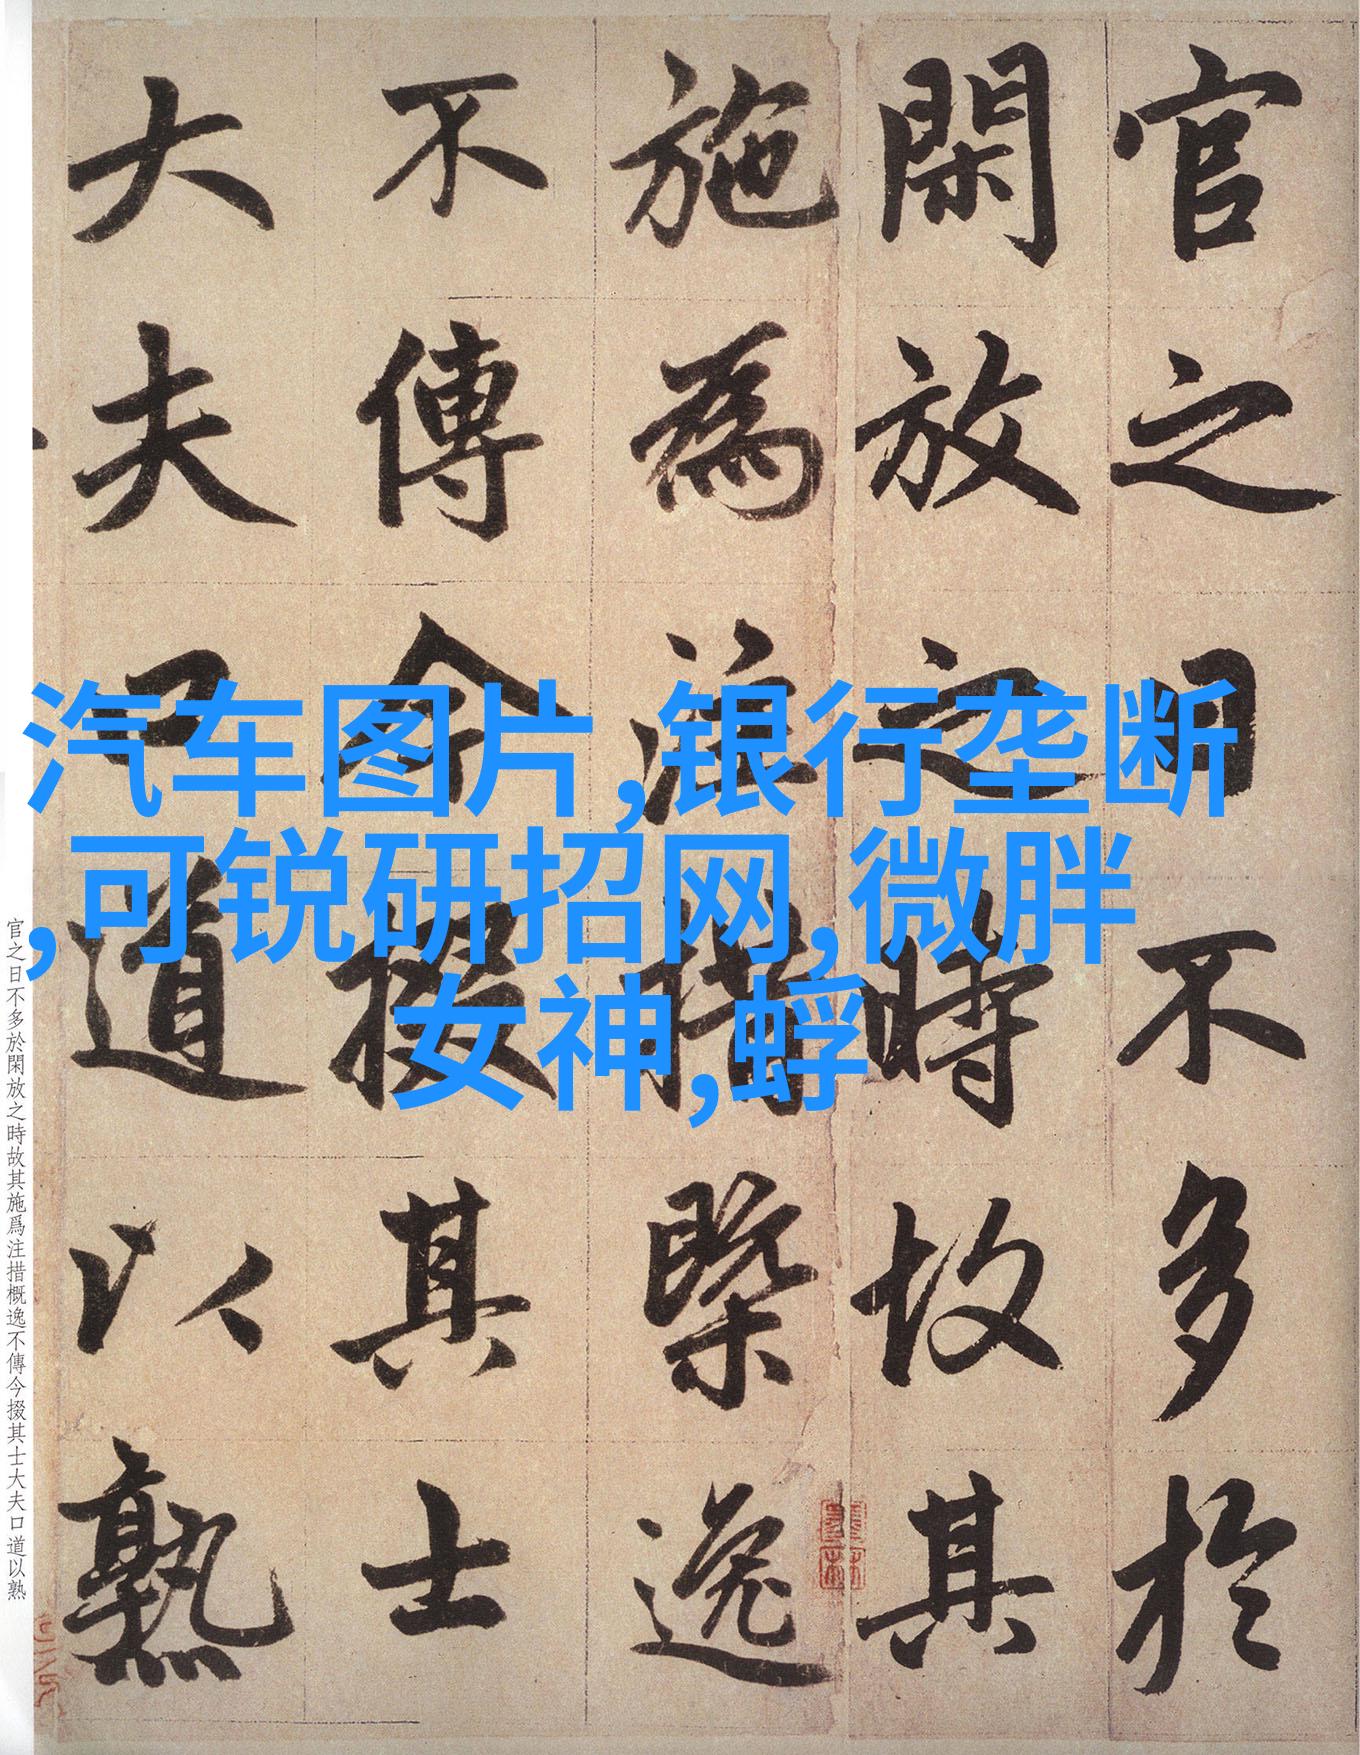 官之日不多於
閑放之時故其
施為注措槩逸
不傳今掇其士
大夫口道以熟
汽车图片,银行垄断
,可锐研招网,微胖
女神,蜉
官之日不多於閑放之時故其施爲注措概逸不傳今掇其士大夫口道以熟